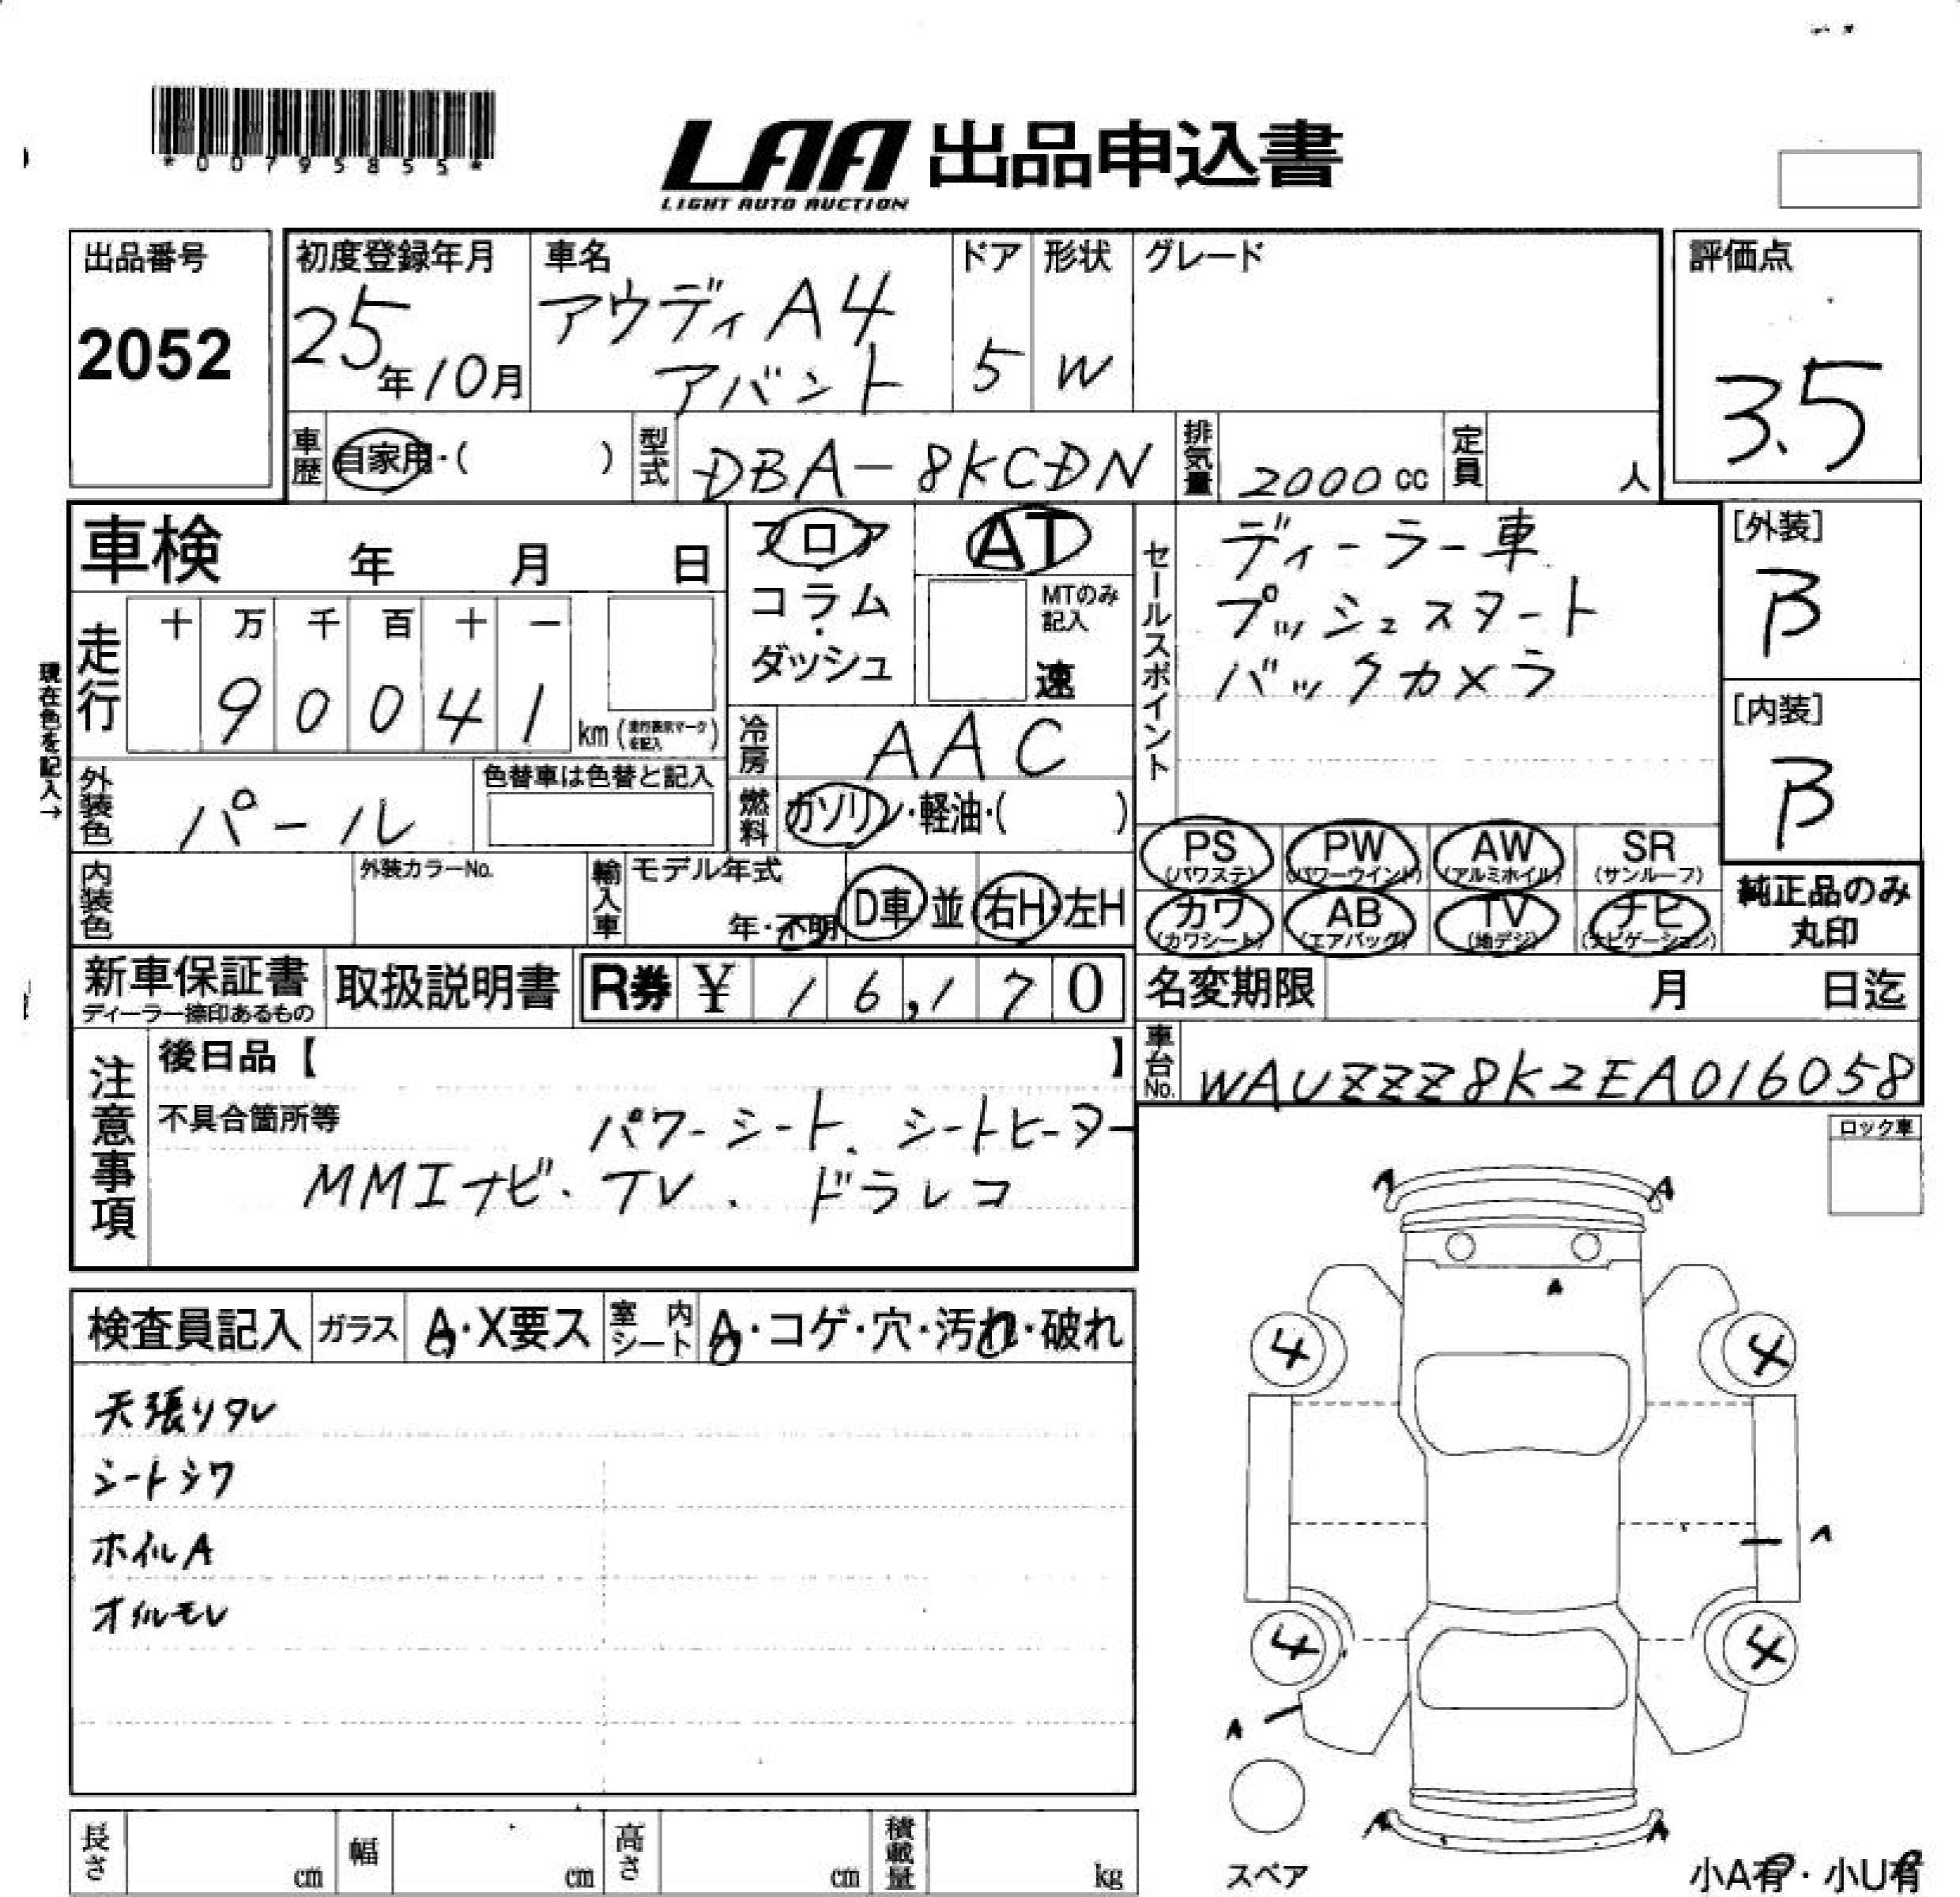 *00795855*
LAA 出品申込書
LIGHT AUTO AUCTION
出品番号
2052
初度登録年月
25年10月
車名
アウディA4
アバント
ドア
5
形状
W
グレード
評価点
3.5
車歴 自家用・( )
型式 DBA-8KCDN
排気量 2000cc
定員 人
車検 年 月 日
フロア
コラム
・
ダッシュ
AT
MTのみ
記入
速
セールスポイント
ディーラー車
プッシュスタート
バックカメラ
[外装]
B
[内装]
B
現在色を記入→
走行
十 万 千 百 十 一
9 0 0 4 1 km
冷房 AAC
燃料 ガソリン・軽油・( )
外装色 パール
色替車は色替と記入
PS (パワステ)
PW (パワーウインド)
AW (アルミホイル)
SR (サンルーフ)
カワ (カワシート)
AB (エアバッグ)
TV (地デジ)
ナビ (ナビゲーション)
純正品のみ
丸印
内装色
外装カラーNo.
輸入車
モデル年式
年・不明
D車 並 右H・左H
新車保証書
ディーラー捺印あるもの
取扱説明書
R券 ¥ 16,170
名変期限 月 日迄
車台No. WAUZZZ8K2EA016058
注意事項
後日品【 】
不具合箇所等
パワーシート、シートヒーター
MMIナビ・TV・ドラレコ
ロック車
検査員記入
ガラス A・X要ス
室内シート A・コゲ・穴・汚れ・破れ
天張りタレ
シートシワ
ホイルA
オイルモレ
A A
A
4 4
A
4 4
A
A A
スペア
小A有・小U有
長さ cm
幅 cm
高さ cm
積載量 kg